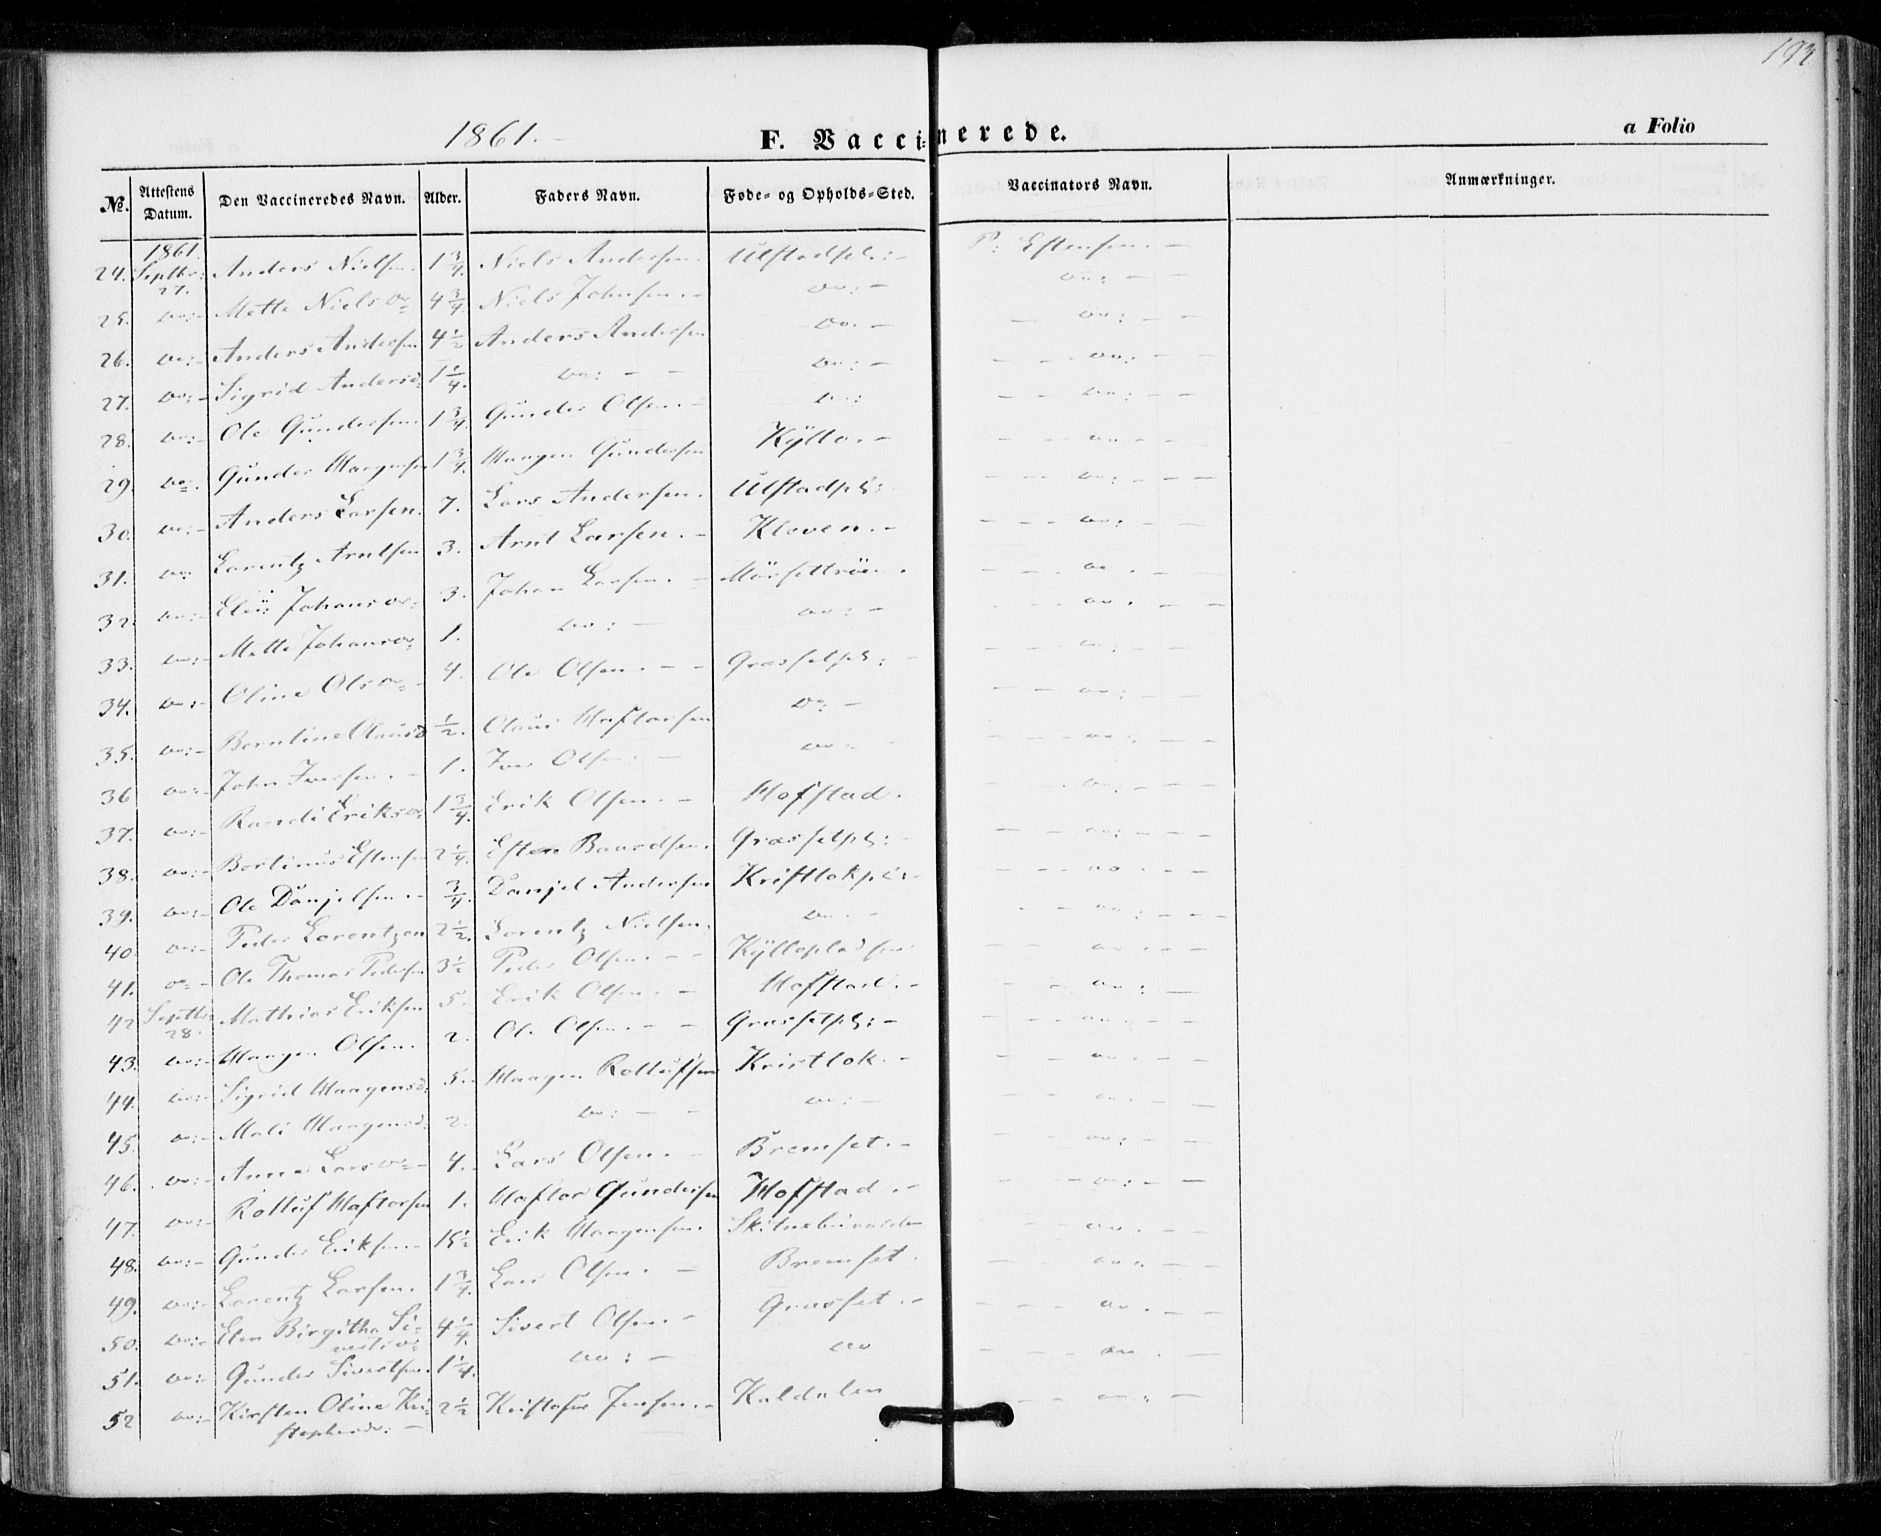 193
1861.
F. Vaccinerede.
a Folio
№. Attestens Datum. Den Vaccineredes Navn. Alder. Faders Navn. Føde- og Opholds-Sted. Vaccinators Navn. Anmærkninger.
1861.
24. Septbr: 27. Anders Nielsen. 1 3/4. Niels Andersen. Ulstadpl: - P: Estensen. -
25. do: - Mette Nielsd: 4 3/4. Niels Johnsen. - do: - do: - -
26. do: - Anders Andersen 4 1/2 Anders Andersen do. - - do: - -
27. do: - Sigrid Andersd: 1 1/4. do: - - do: - - - do: - -
28. do: - Ole Gundersen. 1 3/4. Gunder Olsen. - do: - - do: - -
29. do. Gunder Haagensen 1 3/4. Haagen Gundersen Kyllo. - - - do. - -
30. do: - Anders Larsen. 7. Lars Andersen. Ulstadpl: - - do: - - -
31. do: Lorentz Arntsen 3. Arnt Larsen. - Kloven. - - - - do: - -
32. do: - Elen Johansd: 3. Johan Larsen. - Mørsettrøe. - - - do. - -
33. do: - Mette Johansd: 1. do: - do: - - - - do. - - -
34. do: - Oline Olsd: - 4. Ole Olsen. - - Græssetpl: - - - - do: - -
35. do: - Berntine Olausd 1/2. Olaus Haftorsen do: - - - do: - -
36 do: - John Iversen. - 1. Iver Olsen. - do: - - - do: - -
37. do: - Randi Eriksd: 1 3/4. Erik Olsen. - Hofstad. - do: - -
38. do: - Bertinus Estensen 2 1/4. Esten Baardsen. Græssetpl: - - - do: - -
39. do: - Ole Danjelsen. - 3/4. Danjel Andersen Kristlokpl: - - - do - - -
40. do: - Peder Lorentzen 2 1/2. Lorentz Nielsen. do: - - - do: - - -
41. do - Ole Thomas Pedersen 3 1/2 Peder Olsen. - - Kyllopladsen - - do - - -
42 Septbr 28. Mathias Eriksen 5. Erik Olsen. - Hofstad. - - - do: -
43. do: - Haagen Olsen. 2. Ole Olsen. - - Græssetpl: - - - - do: - -
44. do: - Sigrid Haagensd: 5. - Haagen Rolluffsen Kristlok. - - - do. - -
45. do: - Mali Haagensd: 2. do: - - do: - - - do: - -
46. do: - Anne Larsd: - 4. - Lars Olsen. - Bremset. - - - do: - -
47. do: - Rolluf Haftorsen 1. Haftor Gundersen Hofstad. - - - do: - -
48. do: - Gunder Eriksen. - 15 1/2 Erik Haagensen. - - do. -
49. do: - Lorentz Larsen. 1 3/4. Lars Olsen. - Bremset. - - do: - -
50. do: - Elen Birgitha Si-
vertsd: 4 1/4. Sivert Olsen. - Græsset. - - - - do. - -
51. do: Gunder Sivertsen. 1 1/4. do: - do - - - do. -
52 do: - Kirsten Oline Kri-
stophersd: - 2 1/2 Kristofer Jensen. - Kaldalen - - do: -